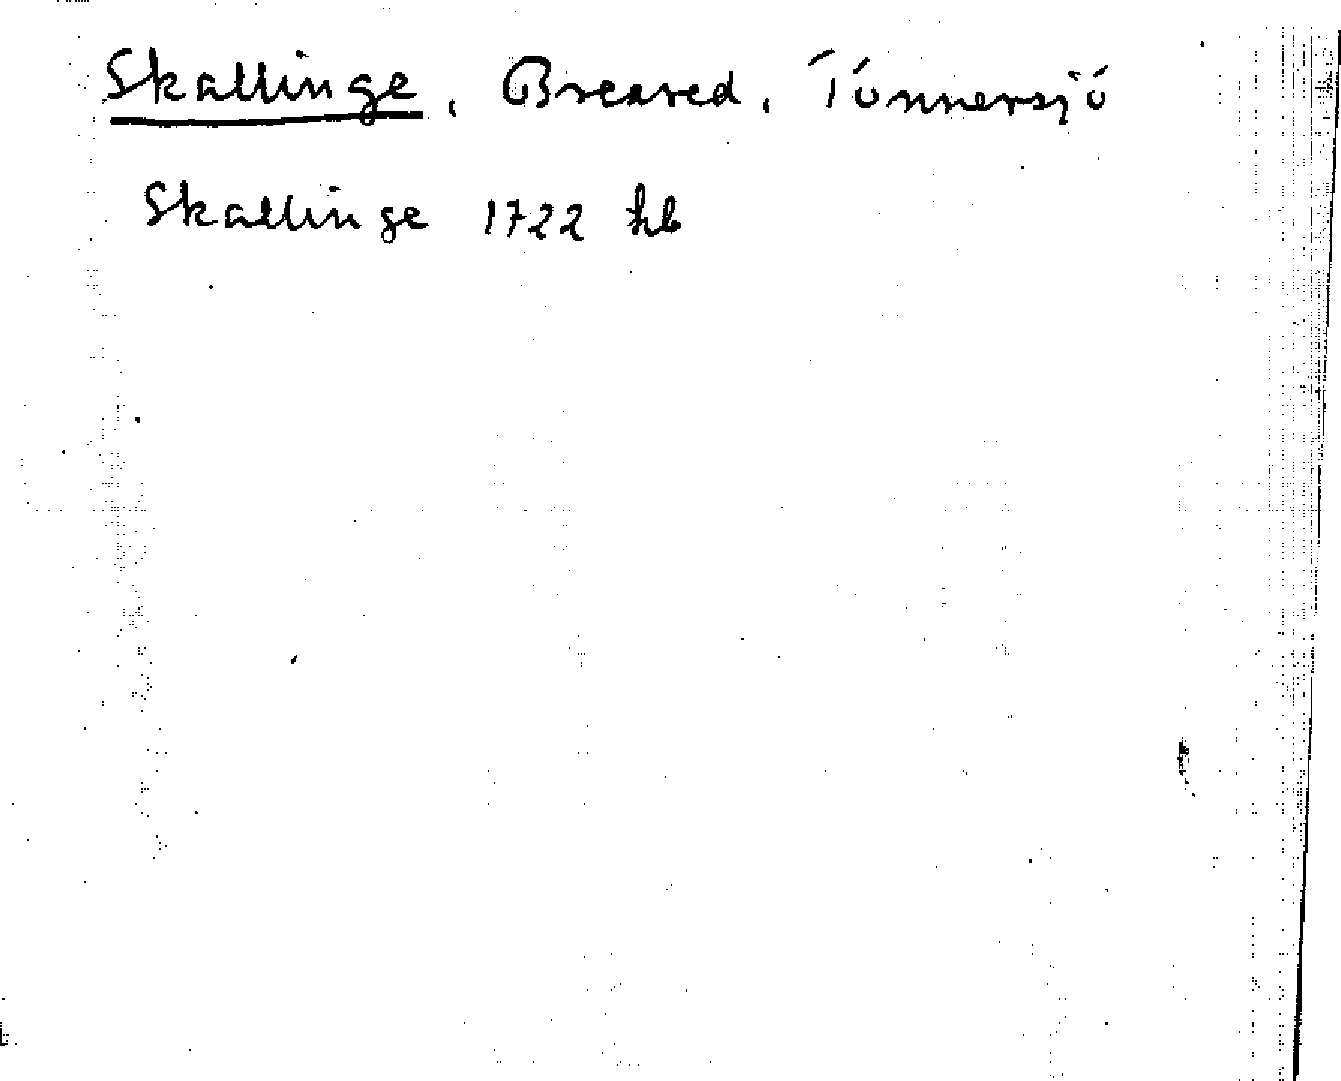 Skallinge, Breared, Tönnersjö
Skallinge 1722 hb